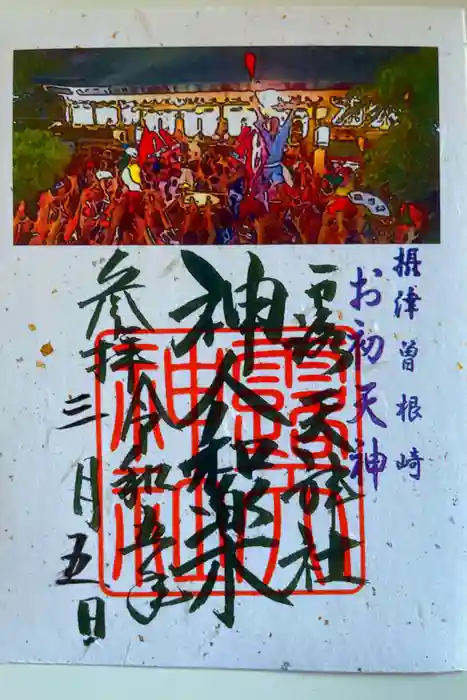 摂津曽根崎
お初天神
露天神社
神人和楽
参拝令和五年
三月五日